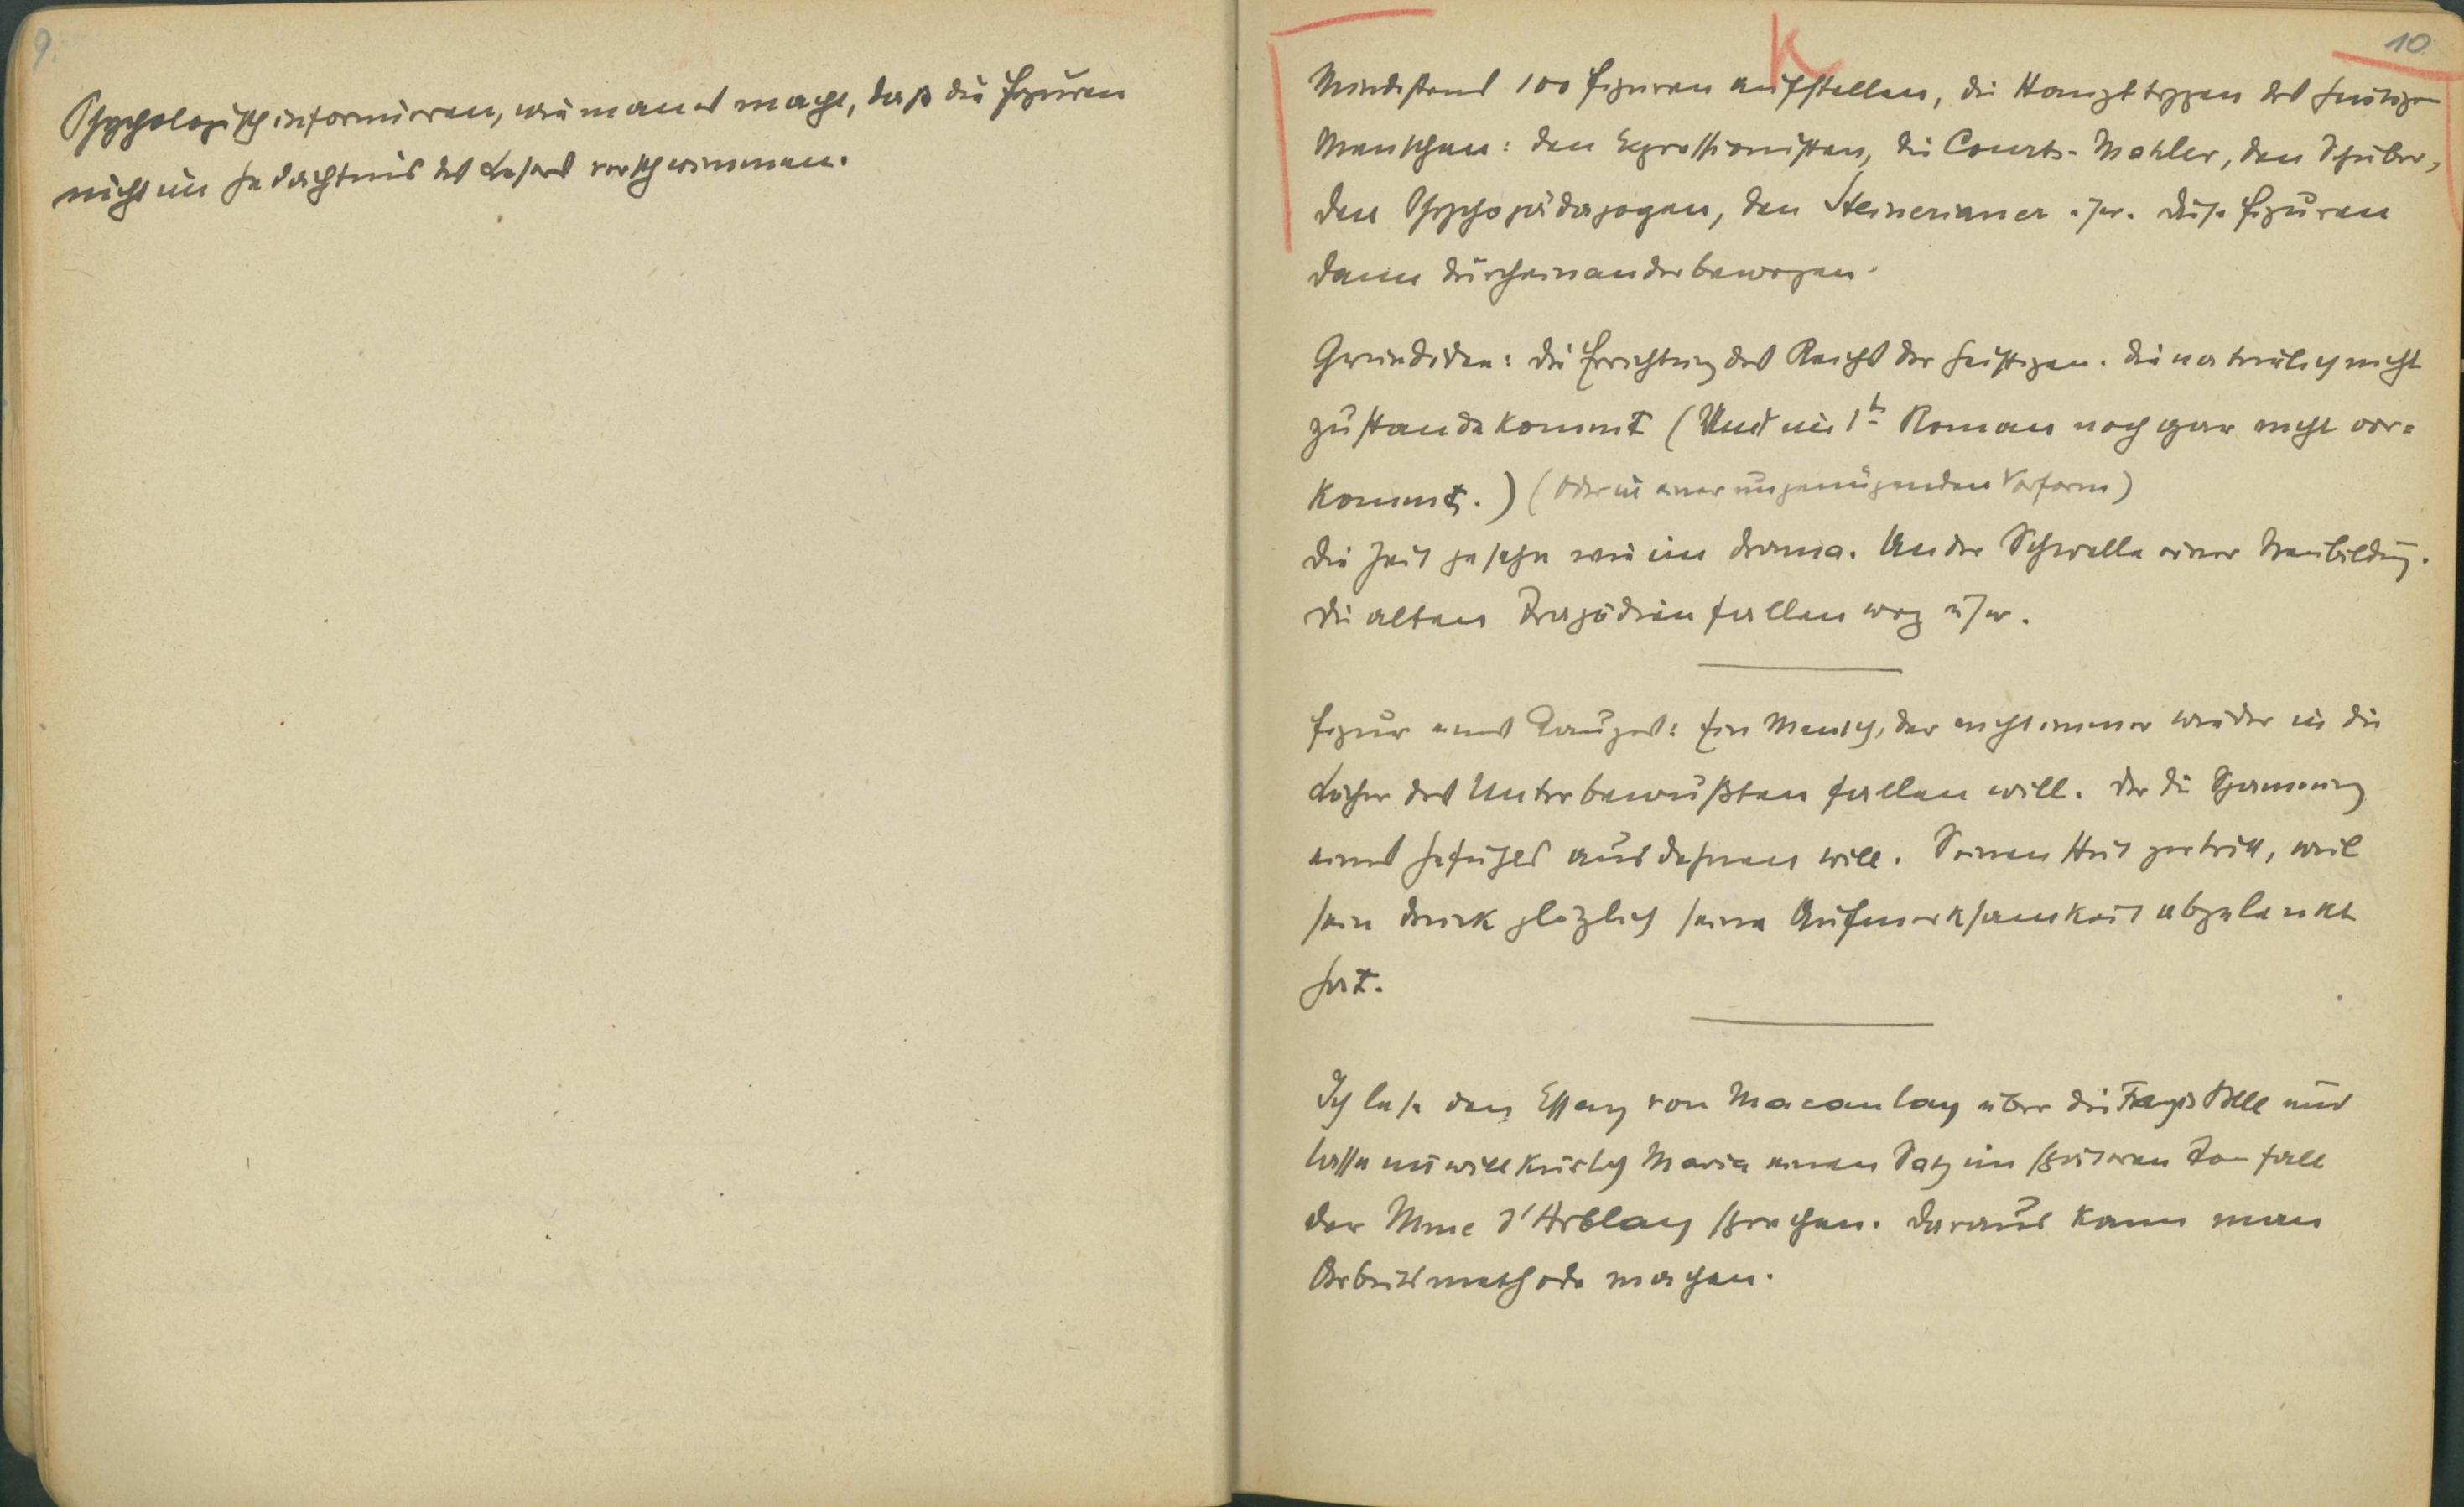 9.
Psychologisch informieren, wie man es macht, daß die Figuren
nicht im Gedächtnis des Lesers verschwimmen.
K
10
Mindestens 100 Figuren aufstellen, die Haupttypen des heutigen
Menschen: den Expressionisten, die Courts-Mahler, den Schieber,
den Psychopädagogen, den Steinerianer usw. Diese Figuren
dann durcheinanderbewegen.
Grundidee: Die Errichtung des Reichs der Geistigen. Die natürlich nicht
zustandekommt (Und im 1t Roman noch gar nicht vor=
kommt.) (Oder in einer ungenügenden Vorform)
Die Zeit gesehn wie im Drama. An der Schwelle einer Neubildung.
Die alten Tragödien fallen weg usw.
Figur eines Kauzes: Ein Mensch, der nicht immer wieder in die
Löcher des Unterbewußten fallen will. Der die Spannung
eines Gefühls ausdehnen will. Seinen Hut zertritt, weil
sein Druck plötzlich seine Aufmerksamkeit abgelenkt
hat.
Ich lese den Essay von Macaulay über die und
lasse unwillkürlich Maria einen Satz im späteren Tonfall
der Mme d'Arblay sprechen. Daraus kann man
Arbeitsmethode machen.